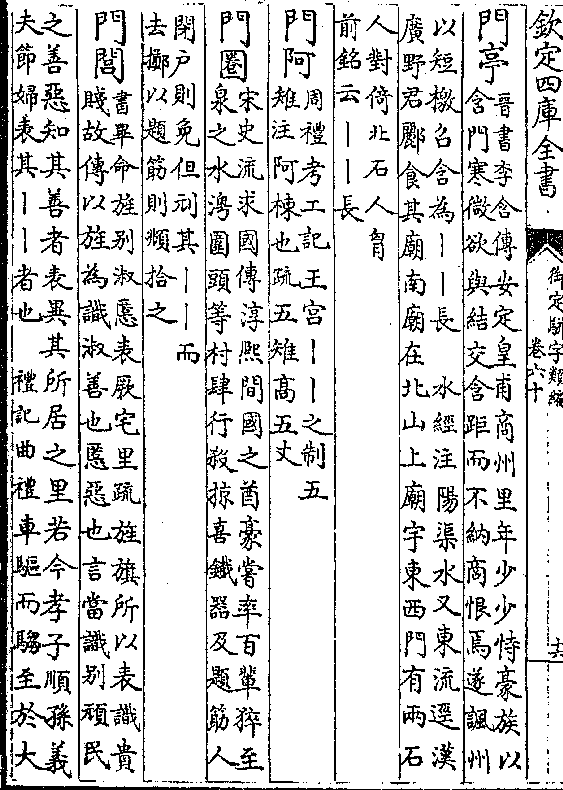 欽定四庫全書
御定駢字類編
卷六十
十六
門亭
晉書李含傳安定皇甫商州里年少少恃豪族以
含門寒微欲與結交含距而不納商恨焉遂諷州
以短檄召含為丨丨長　水經注陽渠水又東流逕漢
廣野君酈食其廟南廟在北山上廟宇東西門有兩石
人對倚北石人胷
前銘云丨丨長
門阿
周禮考工記王宮丨丨之制五
雉注阿棟也疏五雉高五丈
門圈
宋史流求國傳淳熙間國之酋豪嘗率百輩猝至
泉之水澚圍頭等村肆行殺掠喜鐵器及題筋人
閉户則免但刓其丨丨而
去擲以題筋則頫拾之
門閭
書畢命旌别淑慝表厥宅里疏旌旗所以表識貴
賤故傳以旌為識淑善也慝惡也言當識别頑民
之善惡知其善者表異其所居之里若今孝子順孫義
夫節婦表其丨丨者也　禮記曲禮車驅而騶至於大